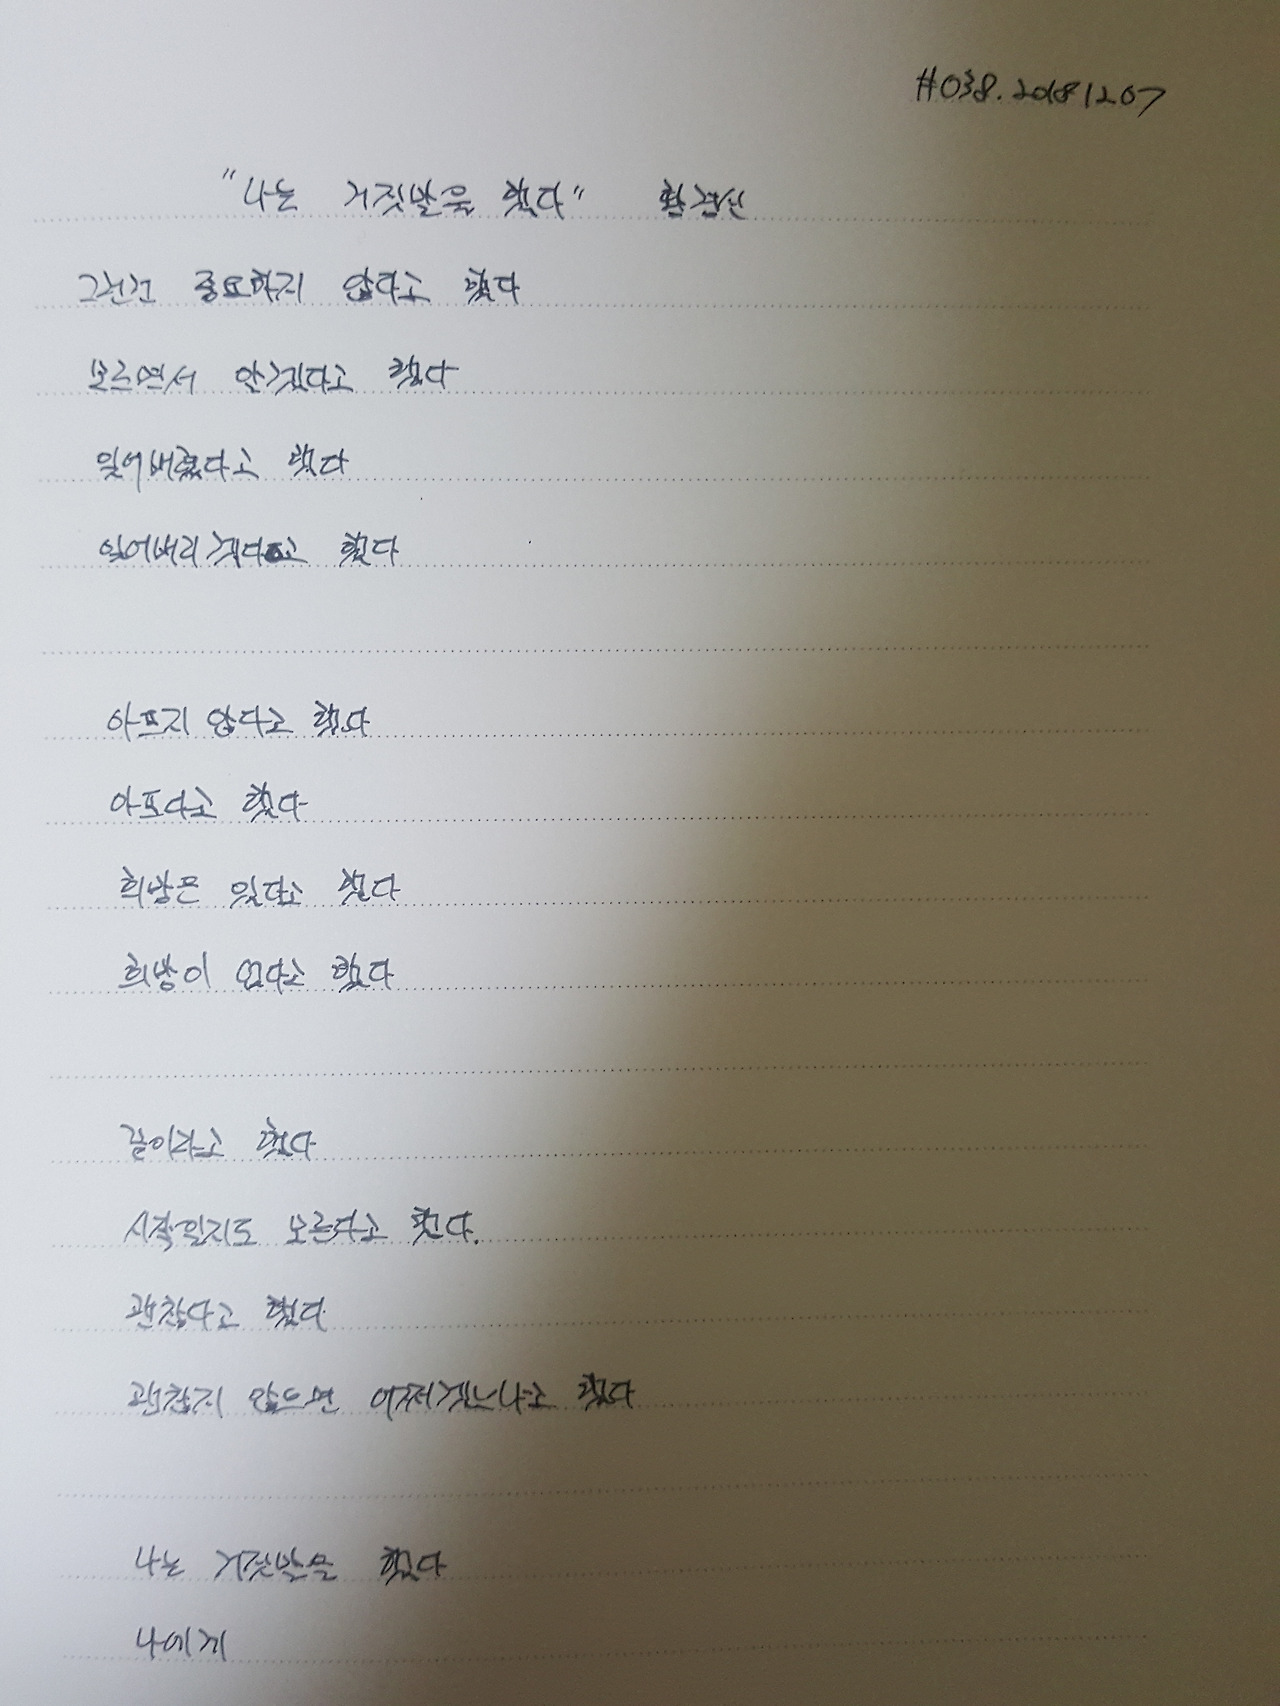 #038. 20181207
"나는 거짓말을 했다" 황경신
그런건 중요하지 않다고 했다
모르면서 알겠다고 했다
잊어버렸다고 했다
잊어버리겠다고 했다
아프지 않다고 했다
아프다고 했다
희망은 있다고 했다
희망이 없다고 했다
끝이라고 했다
시작일지도 모른다고 했다.
괜찮다고 했다
괜찮지 않으면 어쩌겠느냐고 했다
나는 거짓말을 했다
나에게